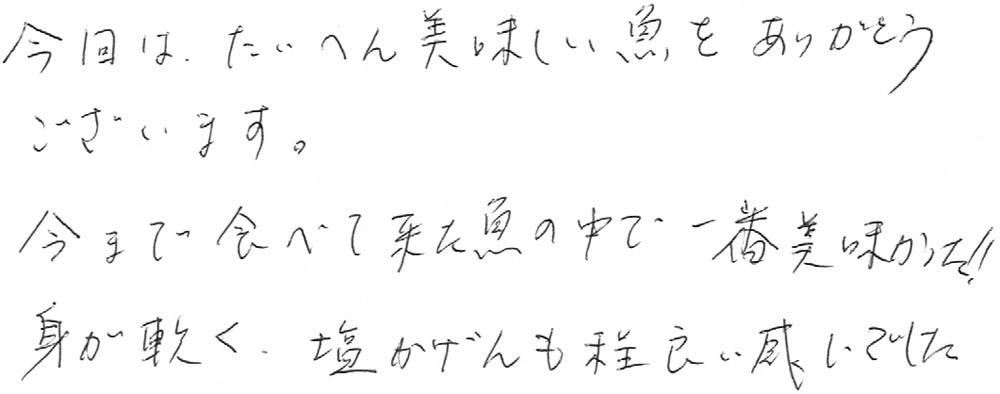 今回は、たいへん美味しい魚をありがとう
ございます。
今まで食べて来た魚の中で一番美味かった!!
身が軟く、塩かげんも程良い感じでした